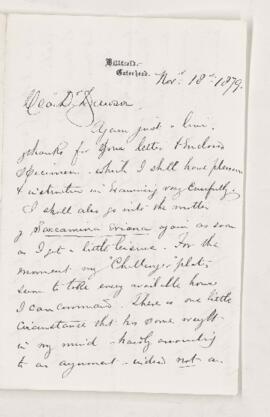 Hillfield.
Gateshead.
Novr. 18th. 1879.
Dear Dr. Dawson
Again just a line,
thanks for your letter & enclosed
specimen – which I shall have pleasure
& instruction in examining very carefully.
I shall also go into the matter
of Saccammina eriana again as soon
as I get a little leisure. For the
moment my "Challenger" plates
seem to take every available hour
I can command. There is one little
circumstance that has some weight
in my mind – hardly amounting
to an argument – indeed not a